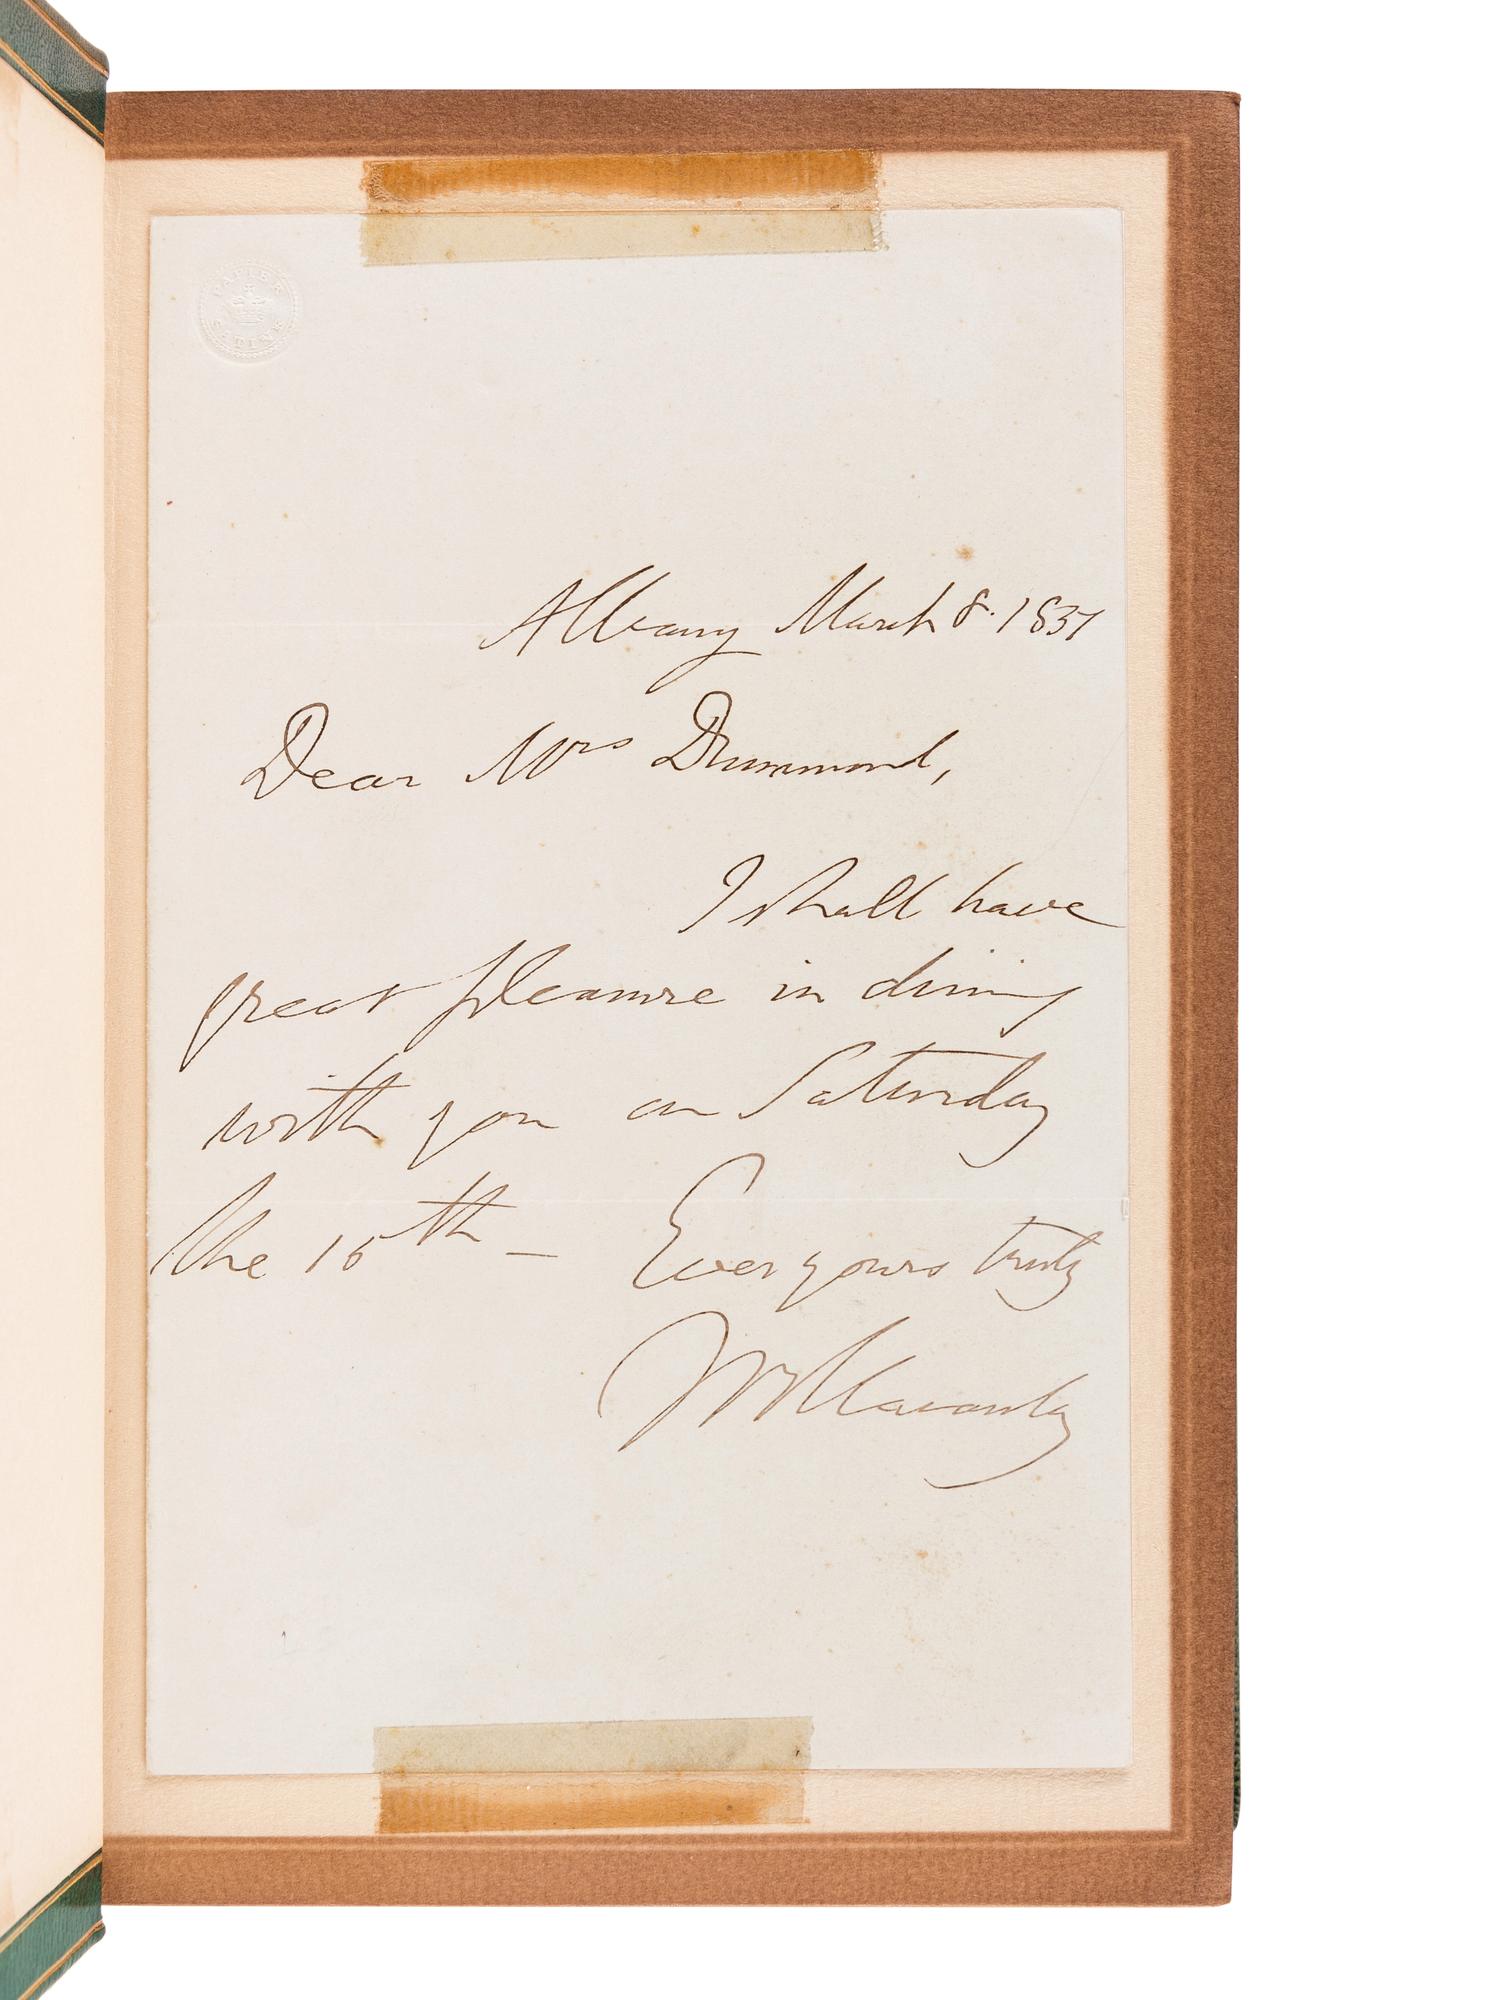 PAPIER
SATINÉ
Albany March 8. 1851
Dear Mrs Drummond,
I shall have
great pleasure in dining
with you on Saturday
the 15th – Ever yours truly
T B Macaulay